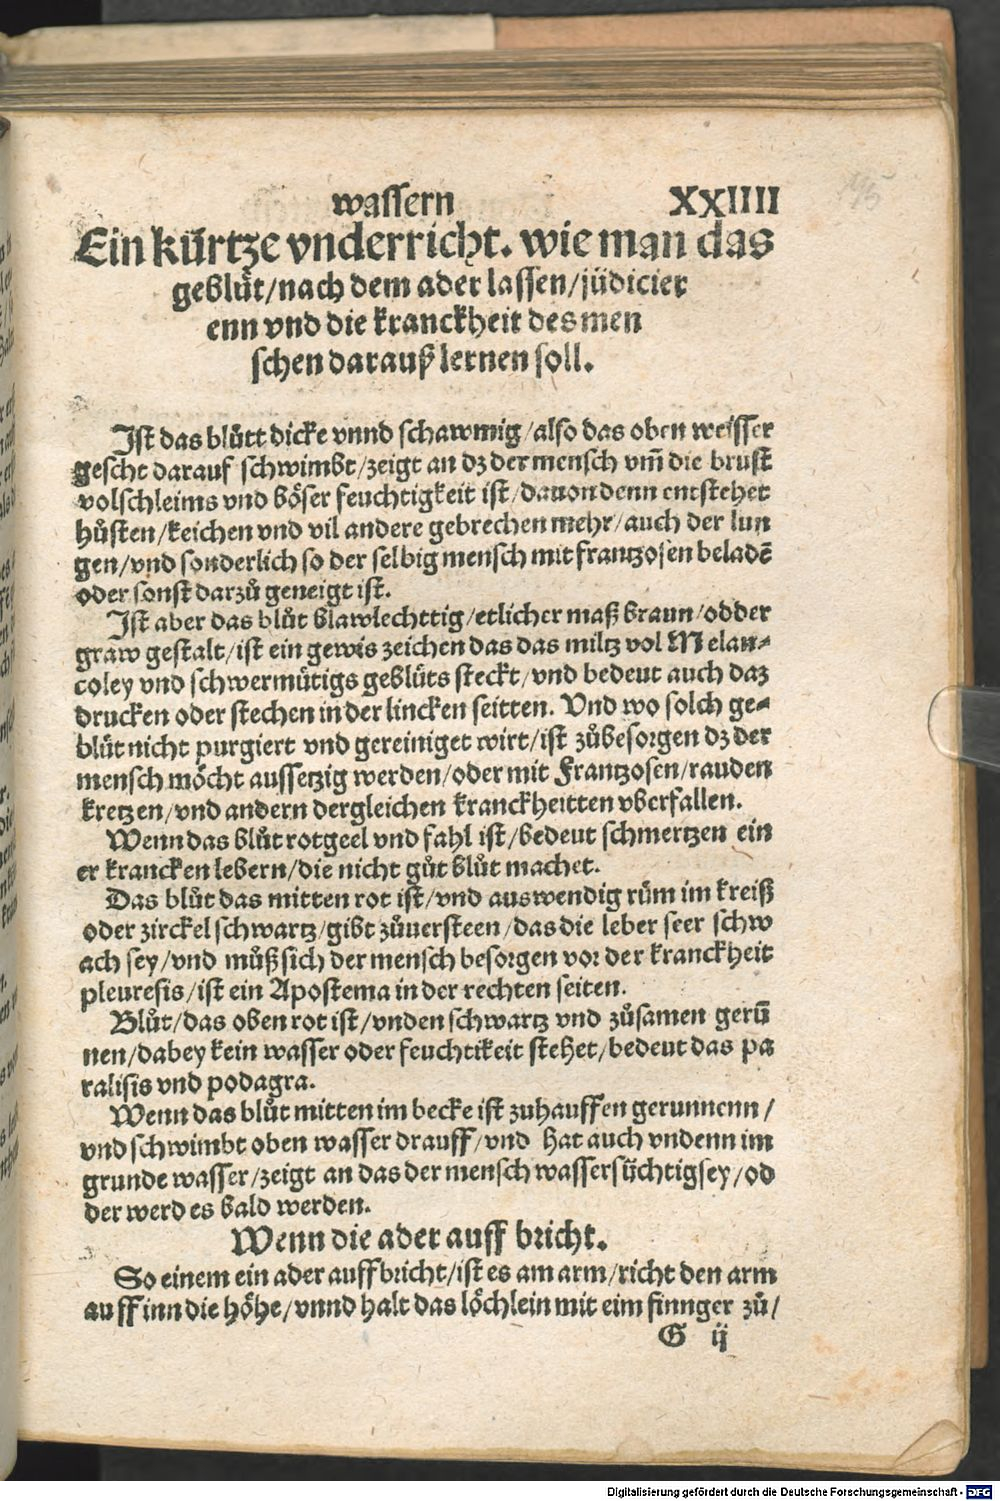 wassern XXIIII
45
Ein kürtze vnderricht. wie man das
geblůt/nach dem ader lassen/jüdicier
enn vnd die kranckheit des men
schen darauß lernen soll.
Ist das blůtt dicke vnnd schawmig/also das oben weisser
gescht darauf schwimbt/zeigt an dz der mensch vm̃ die brust
volschleims vnd böser feuchtigkeit ist/dauon denn entstehet
hůsten/keichen vnd vil andere gebrechen mehr/auch der lun
gen/vnd sonderlich so der selbig mensch mit frantzosen beladẽ
oder sonst darzů geneigt ist.
Ist aber das blůt blawlechttig/etlicher maß braun/odder
graw gestalt/ist ein gewis zeichen das das miltz vol Melan⸗
coley vnd schwermütigs geblüts steckt/vnd bedeut auch daz
drucken oder stechen in der lincken seitten. Vnd wo solch ge⸗
blüt nicht purgiert vnd gereiniget wirt/ist zůbesorgen dz der
mensch möcht aussetzig werden/oder mit Frantzosen/rauden
kretzen/vnd andern dergleichen kranckheitten vberfallen.
Wenn das blůt rotgeel vnd fahl ist/bedeut schmertzen ein
er krancken lebern/die nicht gůt blůt machet.
Das blůt das mitten rot ist/vnd auswendig rüm im kreiß
oder zirckel schwartz/gibt zůuersteen/das die leber seer schw
ach sey/vnd můß sich der mensch besorgen vor der kranckheit
pleuresis/ist ein Apostema in der rechten seiten.
Blůt/das oben rot ist/vnden schwartz vnd zůsamen gerũ
nen/dabey kein wasser oder feuchtikeit stehet/bedeut das pa
ralisis vnd podagra.
Wenn das blůt mitten im becke ist zuhauffen gerunnenn/
vnd schwimbt oben wasser drauff/vnd hat auch vndenn im
grunde wasser/zeigt an das der mensch wassersüchtig sey/od
der werd es bald werden.
Wenn die ader auff bricht.
So einem ein ader auffbricht/ist es am arm/richt den arm
auff inn die höhe/vnnd halt das löchlein mit eim finnger zů/
G ij
Digitalisierung gefördert durch die Deutsche Forschungsgemeinschaft - DFG